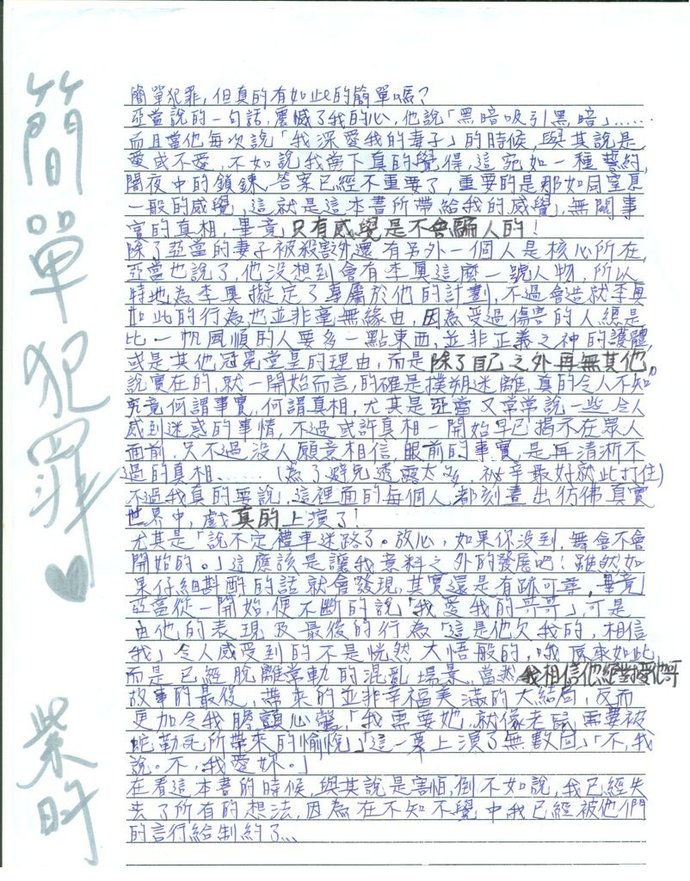 簡單犯罪♥
紫盷
簡單犯罪,但真的有如此的簡單嗎?
亞當說的一句話,震撼了我的心,他說「黑暗吸引黑暗」……
而且當他每次說「我深愛我的妻子」的時候,與其說是
愛或不愛,不如說我當下真的覺得,這宛如一種誓約,
闇夜中的鎖鍊。答案已經不重要了,重要的是那如同窒息
一般的感覺,這就是這本書所帶給我的感覺,無關事
實的真相,畢竟,只有感覺是不會騙人的!
除了亞當的妻子被殺害外,還有另外一個人是核心所在,
亞當也說了,他沒想到會有李奧這麼一號人物,所以
特地為李奧擬定了專屬於他的計劃,不過會造就李奧
如此的行為也並非毫無緣由,因為受過傷害的人總是
比一帆風順的人要多一點東西,並非正義之神的護體,
或是其他冠冕堂皇的理由,而是除了自己之外再無其他。
說實在的,就一開始而言,的確是撲朔迷離,真的令人不知
究竟何謂事實,何謂真相,尤其是亞當又常常說一些令人
感到迷惑的事情,不過或許真相一開始早已揭示在眾人
面前,只不過沒人願意相信,眼前的事實,是再清淅不
過的真相……(為了避免透露太多,祕辛最好就此打住)
不過我真的要說,這裡面的每個人,都刻畫出彷彿真實
世界中,戲真的上演了!
尤其是「說不定禮車迷路了。放心,如果你沒到,舞會不會
開始的。」這應該是讓我意料之外的發展吧!雖然如
果仔細斟酌的話就會發現,其實還是有跡可尋,畢竟
亞當從一開始,便不斷的說「我愛我的哥哥」,可是
由他的表現及最後的行為「這是他欠我的,相信
我」令人感受到的不是恍然大悟般的,哦原來如此
而是已經脫離常軌的混亂場景,當然我相信他絕對愛他哥
故事的最後,帶來的並非幸福美滿的大結局,反而
更加令我膽顫心驚,「我需要她,就像老鼠需要被
蛇勒死所帶來的愉悅」「這一幕上演了無數回」「不,我
說。不,我愛妳。」
在看這本書的時候,與其說是害怕,倒不如說,我已經失
去了所有的想法,因為在不知不覺中我已經被他們
的言行給制約了…